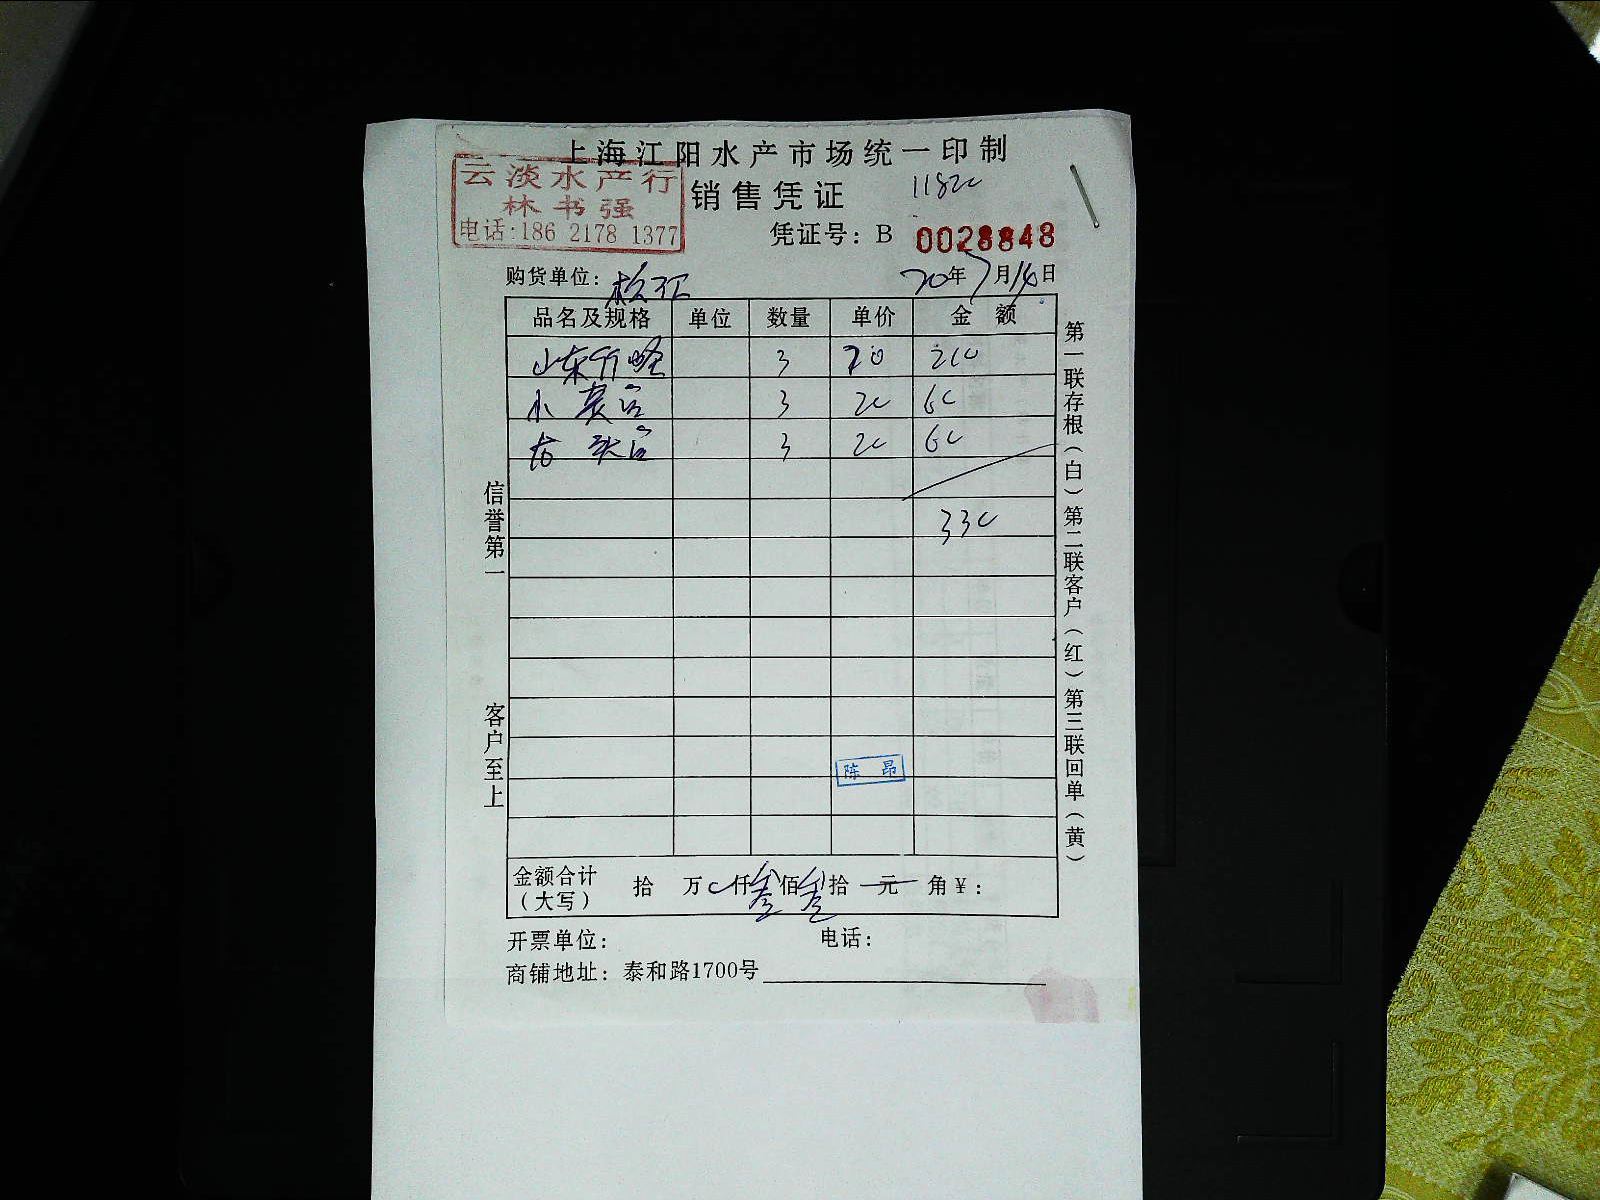 上海江阳水产市场统一印制
云淡水产行
林书强
电话:186 2178 1377
销售凭证
1182
凭证号: B 0028848
购货单位: 松江 20年7月14日
品名及规格 单位 数量 单价 金额
山东竹蛏 3 70 210
小 3 20 60
3 20 60
330
信誉第一
客户至上
陈昂
第一联存根(白)第二联客户(红)第三联回单(黄)
金额合计(大写) 拾 万 0仟叁佰叁拾 元 角 ¥:
开票单位: 电话:
商铺地址: 泰和路1700号